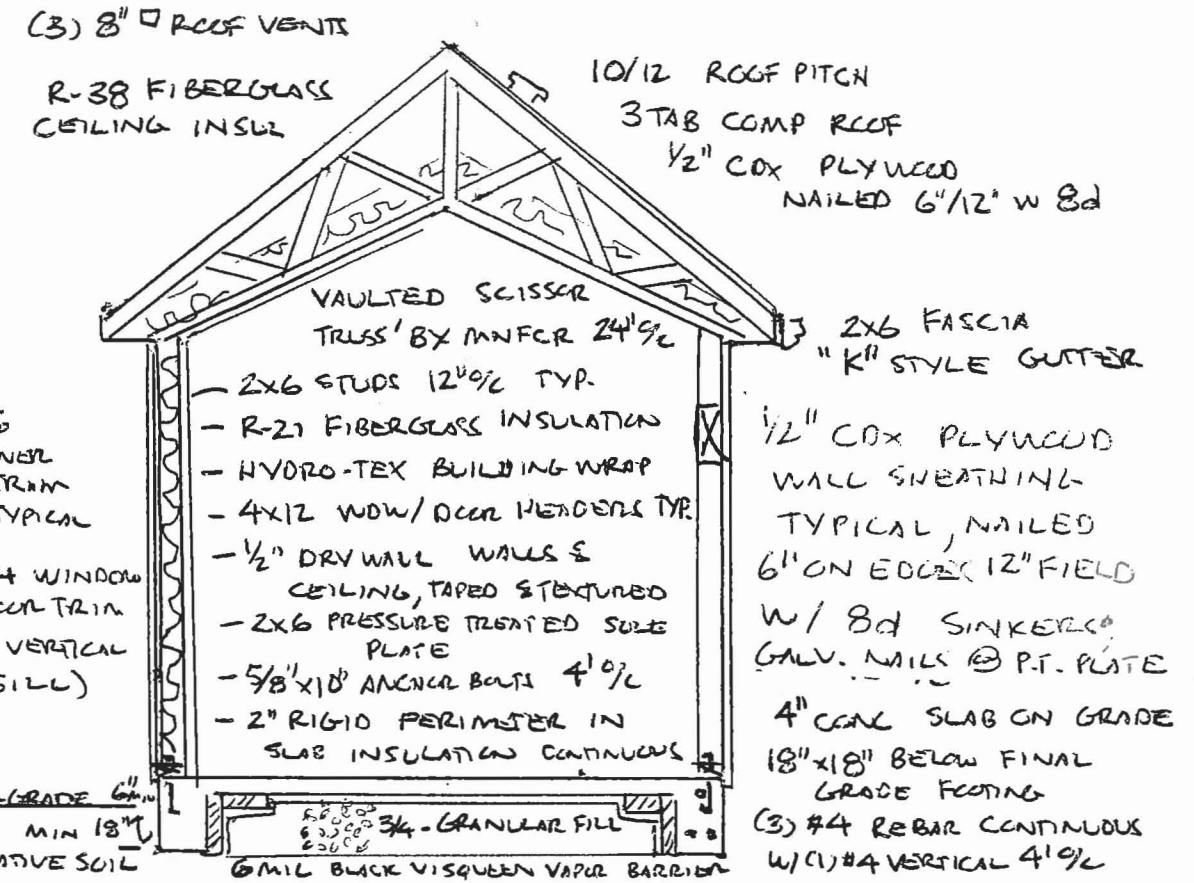 (3) 8" □ ROOF VENTS
R-38 FIBERGLASS
CEILING INSUL
10/12 ROOF PITCH
3 TAB COMP ROOF
1/2" CDX PLYWOOD
NAILED 6"/12" W 8d
VAULTED SCISSOR
TRUSS' BY MNFCR 24" O/C
2x6 FASCIA
"K" STYLE GUTTER
- 2x6 STUDS 12" O/C TYP.
- R-21 FIBERGLASS INSULATION
- HYDRO-TEX BUILDING WRAP
- 4x12 WDW/DOOR HEADERS TYP.
- 1/2" DRYWALL WALLS &
CEILING, TAPED & TEXTURED
- 2x6 PRESSURE TREATED SOLE
PLATE
- 5/8"x10" ANCHOR BOLTS 4' O/C
- 2" RIGID PERIMETER IN
SLAB INSULATION CONTINUOUS
NER
TRIM
TYPICAL
4 WINDOW
OOR TRIM
VERTICAL
SILL)
1/2" CDX PLYWOOD
WALL SHEATHING
TYPICAL, NAILED
6" ON EDGES 12" FIELD
W/ 8d SINKERS
GALV. NAILS @ P.T. PLATE
4" CONC SLAB ON GRADE
18"x18" BELOW FINAL
GRADE FOOTING
(3) #4 REBAR CONTINUOUS
W/(1) #4 VERTICAL 4' O/C
-GRADE 6" MIN
MIN 18"
ATIVE SOIL
3/4 - GRANULAR FILL
6 MIL BLACK VISQUEEN VAPOR BARRIER